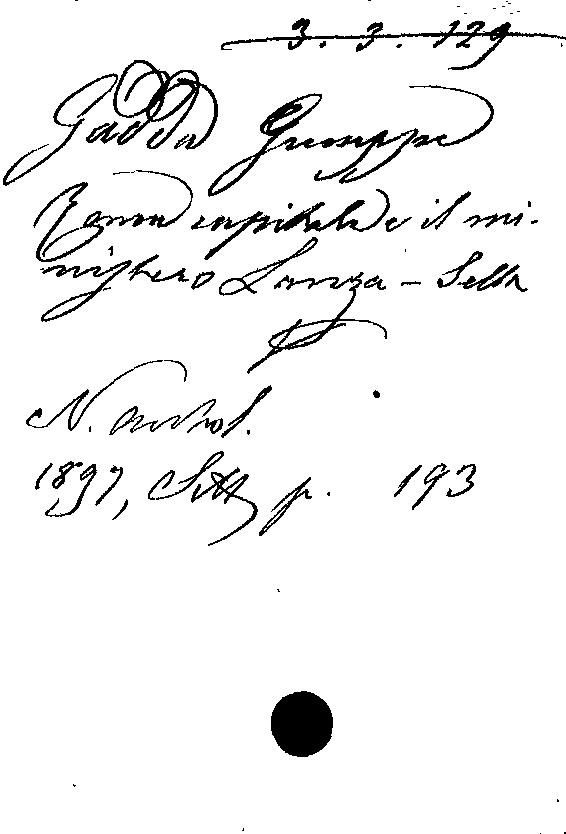 3. 3. 129
Gadda Giuseppe
Roma capitale e il mi-
nistero Lanza - Sella
N. Antol.
1897, Sett p. 193